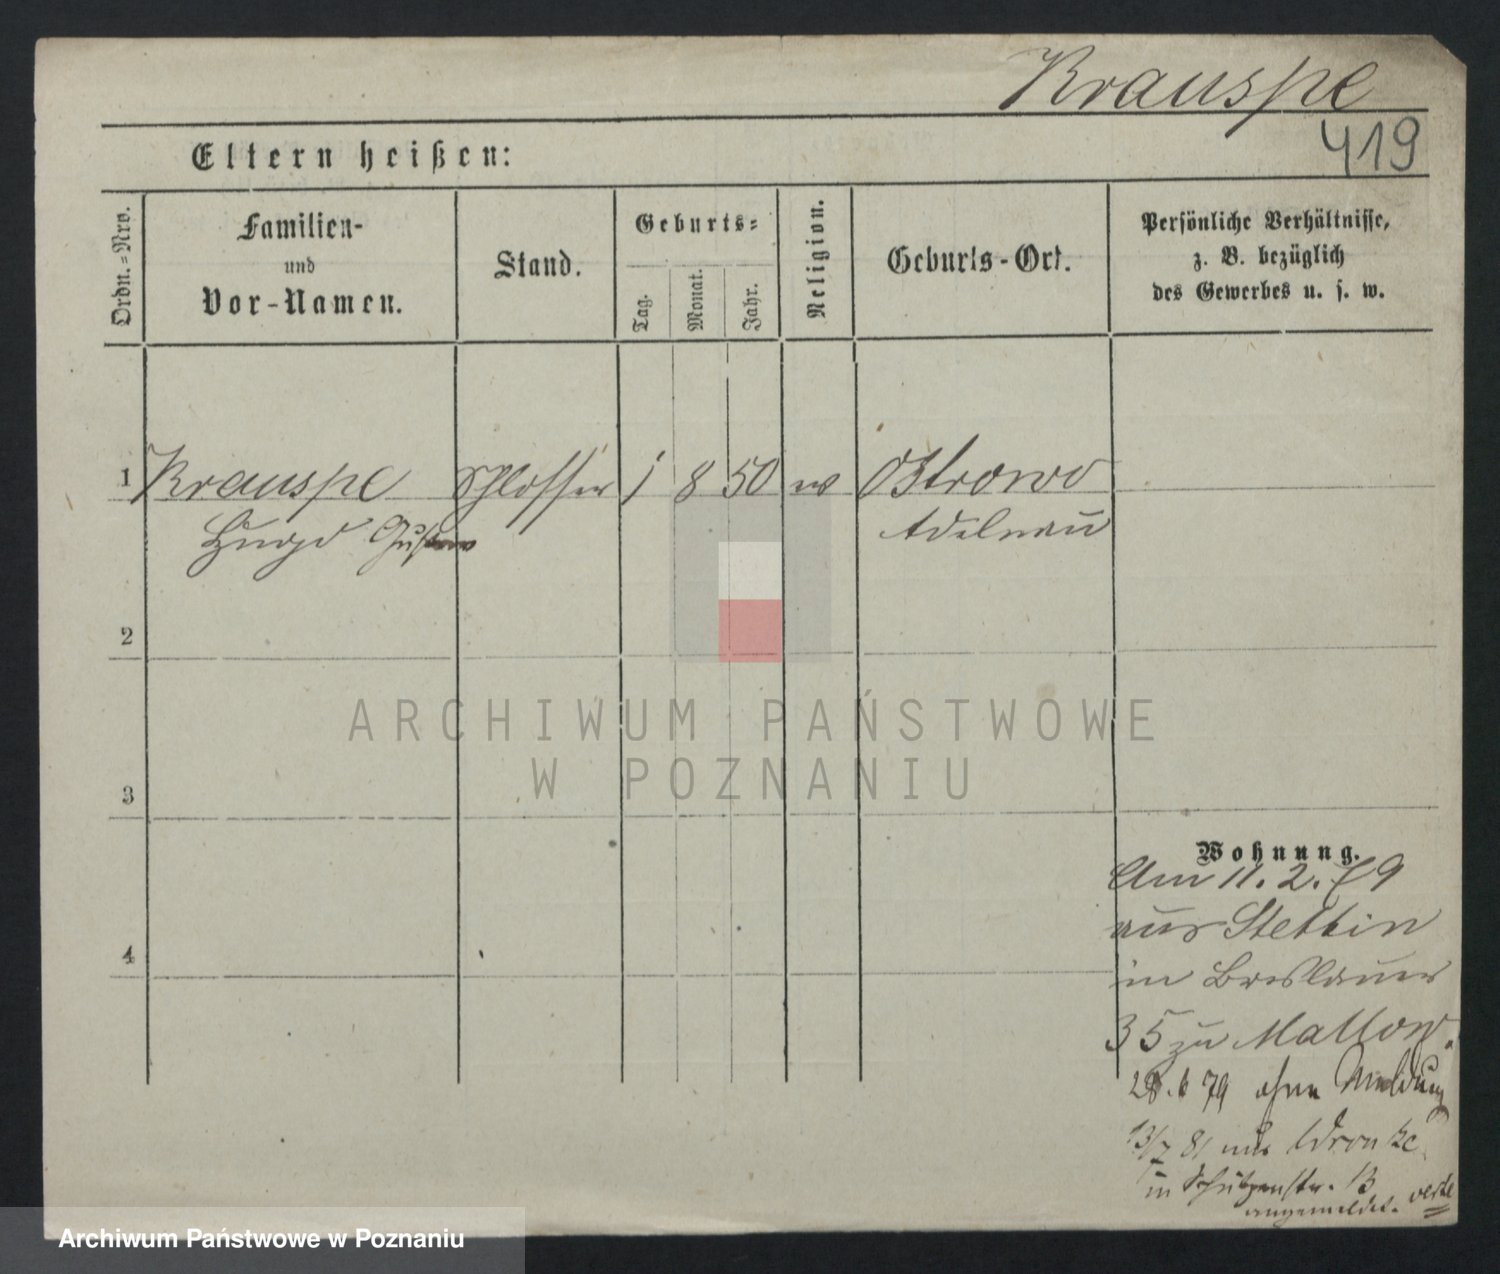 Krauspe
419
Eltern heißen:
Ordn.-Nro.
Familien-
und
Vor-Namen.
Stand.
Geburts-
Tag.
Monat.
Jahr.
Religion.
Geburts-Ort.
Persönliche Verhältnisse,
z. B. bezüglich
des Gewerbes u. s. w.
1 Krauspe Schlosser 1 8 50 ev Ostrowo
Hugo Gustav Adelnau
2
3
4
ARCHIWUM PAŃSTWOWE
W POZNANIU
Wohnung.
Am 11. 2. 79
aus Stettin
in Breslauer
35 zu Mattow.
28. 6 79 ohne Meldung
13/7 81 aus Wronke
in Schützenstr. 13
angemeldet. verte
Archiwum Państwowe w Poznaniu